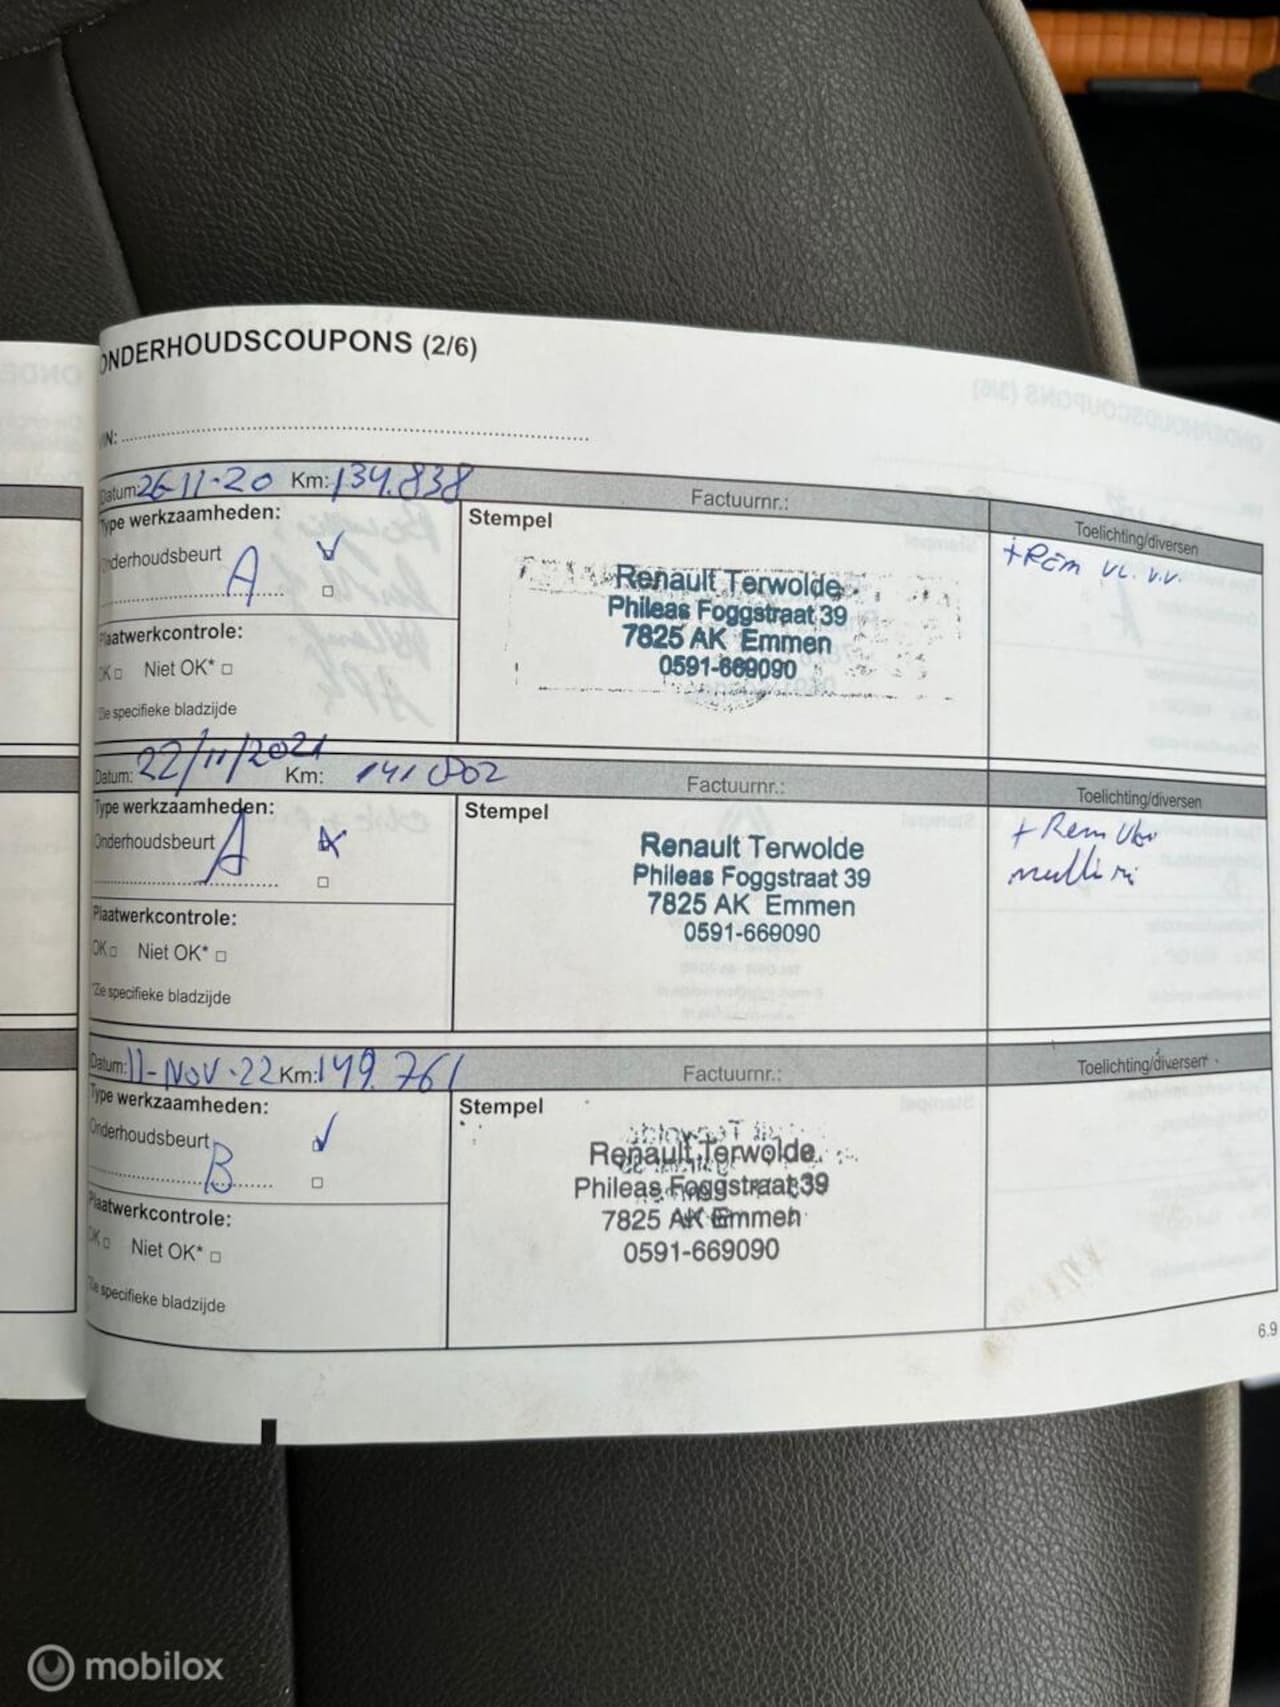 ONDERHOUDSCOUPONS (2/6)
VIN:
Datum: 26-11-20 Km: 134.838 Factuurnr.:
Toelichting/diversen
Type werkzaamheden:
Stempel
Onderhoudsbeurt
A
+ Rem vl. v.v.
Renault Terwolde
Phileas Foggstraat 39
7825 AK Emmen
0591-669090
Plaatwerkcontrole:
OK □ Niet OK* □
*Zie specifieke bladzijde
Datum: 22/11/2021 Km: 141 002 Factuurnr.:
Toelichting/diversen
Type werkzaamheden:
Stempel
Onderhoudsbeurt
A
+ Rem
Renault Terwolde
Phileas Foggstraat 39
7825 AK Emmen
0591-669090
Plaatwerkcontrole:
OK □ Niet OK* □
*Zie specifieke bladzijde
Datum: 11-NOV-22 Km: 149.761 Factuurnr.:
Toelichting/diversen
Type werkzaamheden:
Stempel
Onderhoudsbeurt
B
Renault Terwolde
Phileas Foggstraat 39
7825 AK Emmen
0591-669090
Plaatwerkcontrole:
OK □ Niet OK* □
*Zie specifieke bladzijde
6.9
mobilox